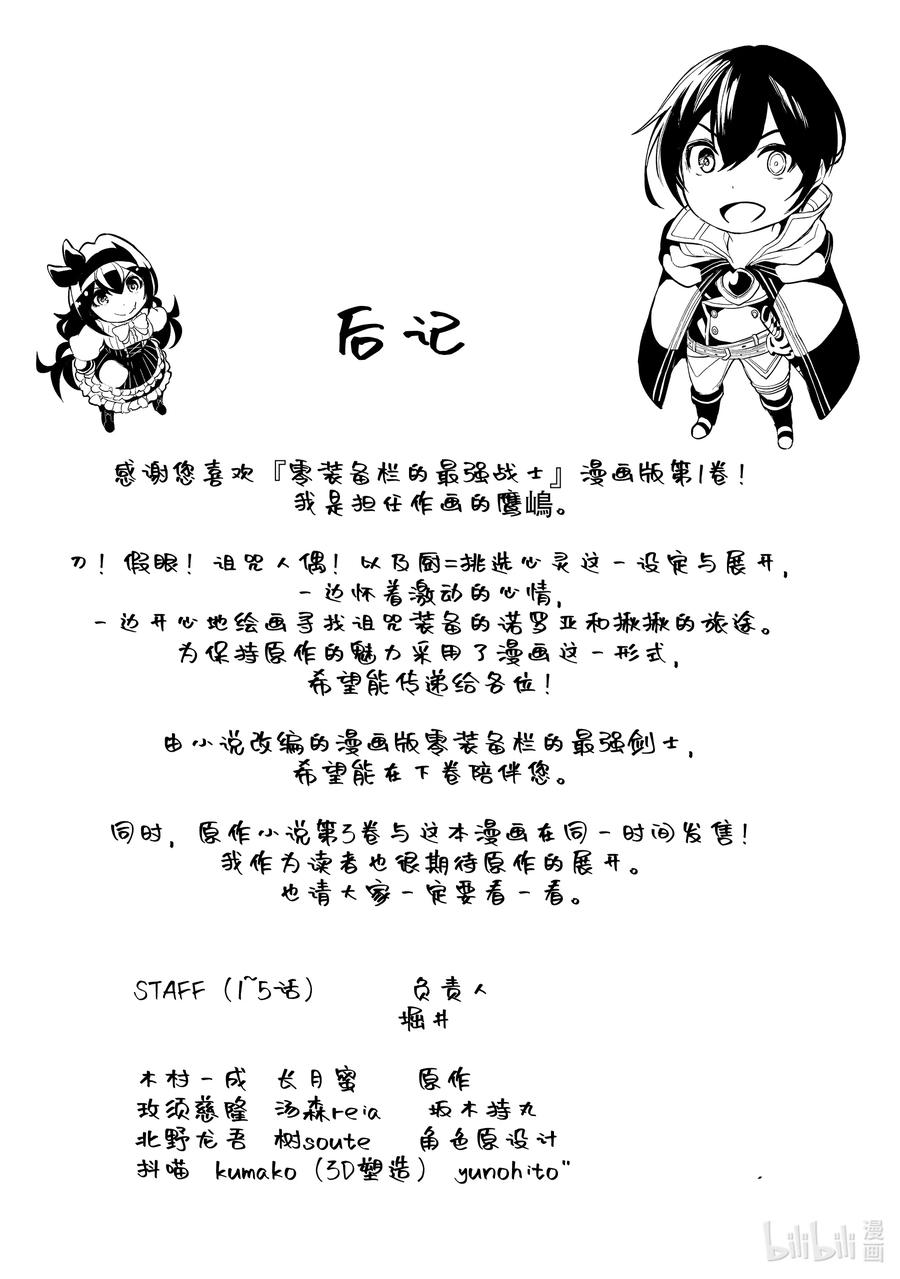 后记
感谢您喜欢『零装备栏的最强战士』漫画版第1卷!
我是担任作画的鹰嶋。
刀!假眼!诅咒人偶!以及厨=挑选心灵这一设定与展开,
一边怀着激动的心情,
一边开心地绘画寻找诅咒装备的诺罗亚和揪揪的旅途。
为保持原作的魅力采用了漫画这一形式,
希望能传递给各位!
由小说改编的漫画版零装备栏的最强剑士,
希望能在下卷陪伴您。
同时,原作小说第3卷与这本漫画在同一时间发售!
我作为读者也很期待原作的展开。
也请大家一定要看一看。
STAFF(1~5话) 负责人
堀井
木村一成 长月蜜 原作
玫须慈隆 汤森reia 坂木持丸
北野龙吾 树soute 角色原设计
抖喵 kumako(3D塑造) yunohito"
bilibili漫画